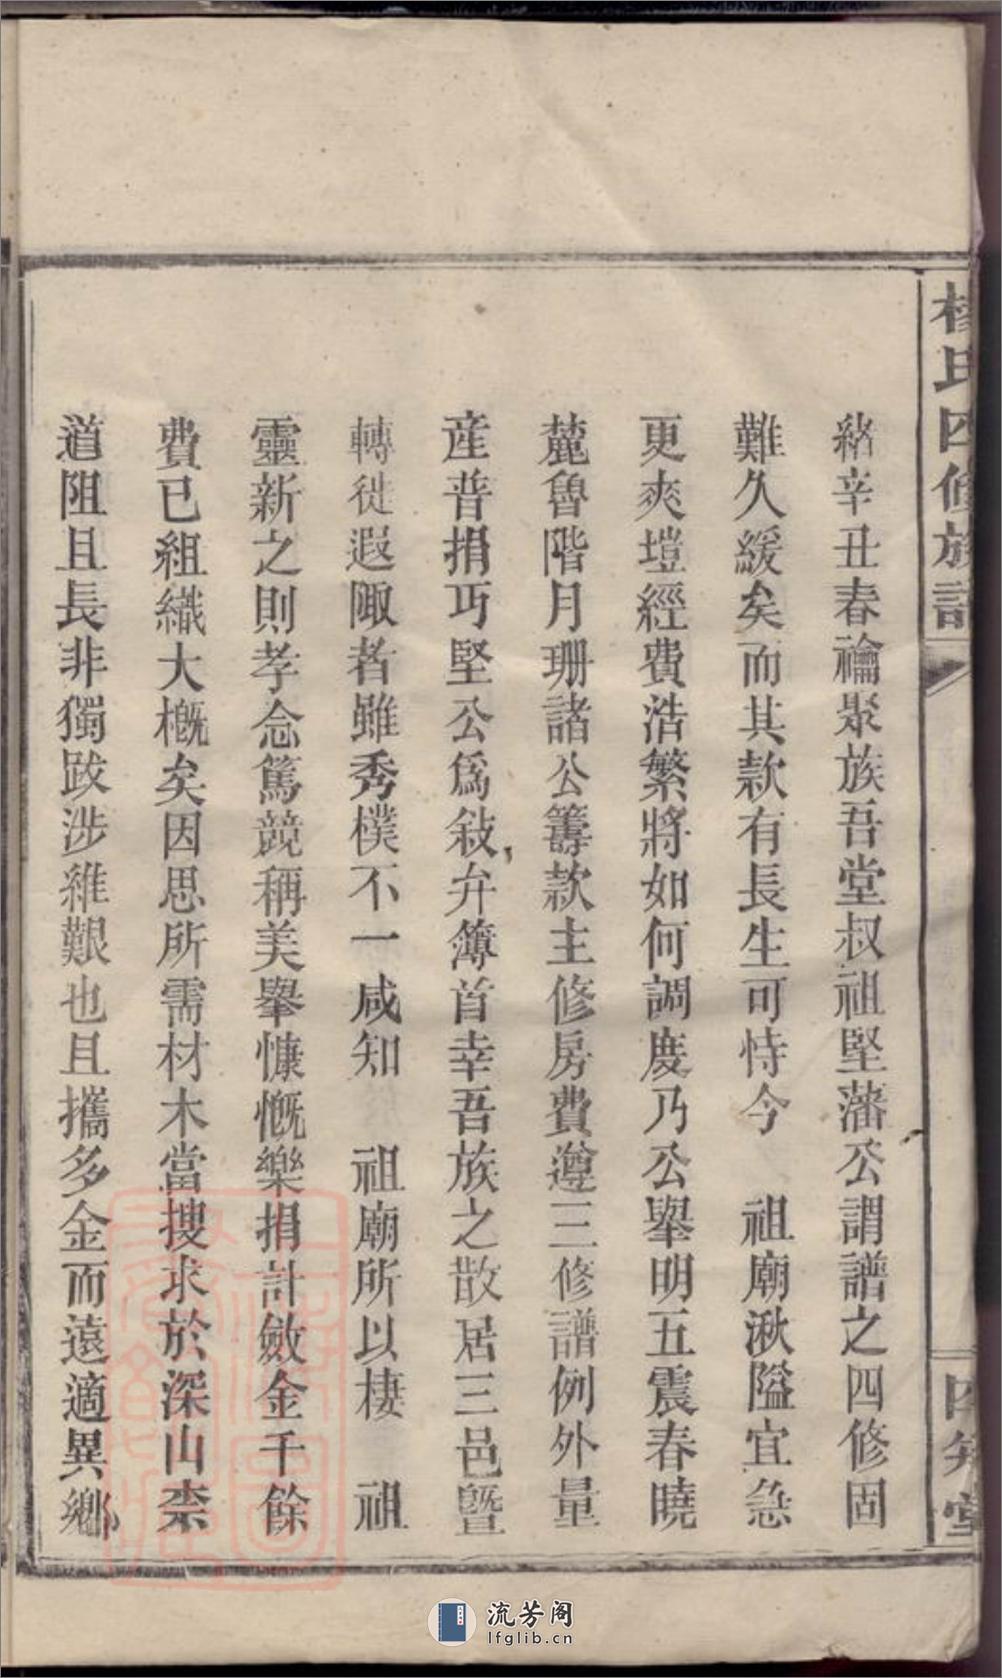 楊氏四修族譜
四知堂
緒辛丑春禴聚族吾堂叔祖堅藩公謂譜之四修固
難久緩矣而其款有長生可恃今　祖廟湫隘宜急
更爽塏經費浩繁將如何調度乃公舉明五震春曉
麓魯階月珊諸公籌款主修房費遵三修譜例外量
産普捐巧堅公爲敍弁簿首幸吾族之散居三邑曁
轉徙遐陬者雖秀樸不一咸知　祖廟所以棲　祖
靈新之則孝念篤競稱美舉慷慨樂捐計斂金千餘
費已組織大槪矣因思所需材木當搜求於深山柰
道阻且長非獨跋涉維艱也且攜多金而遠適異鄉
流芳阁
lfglib.cn